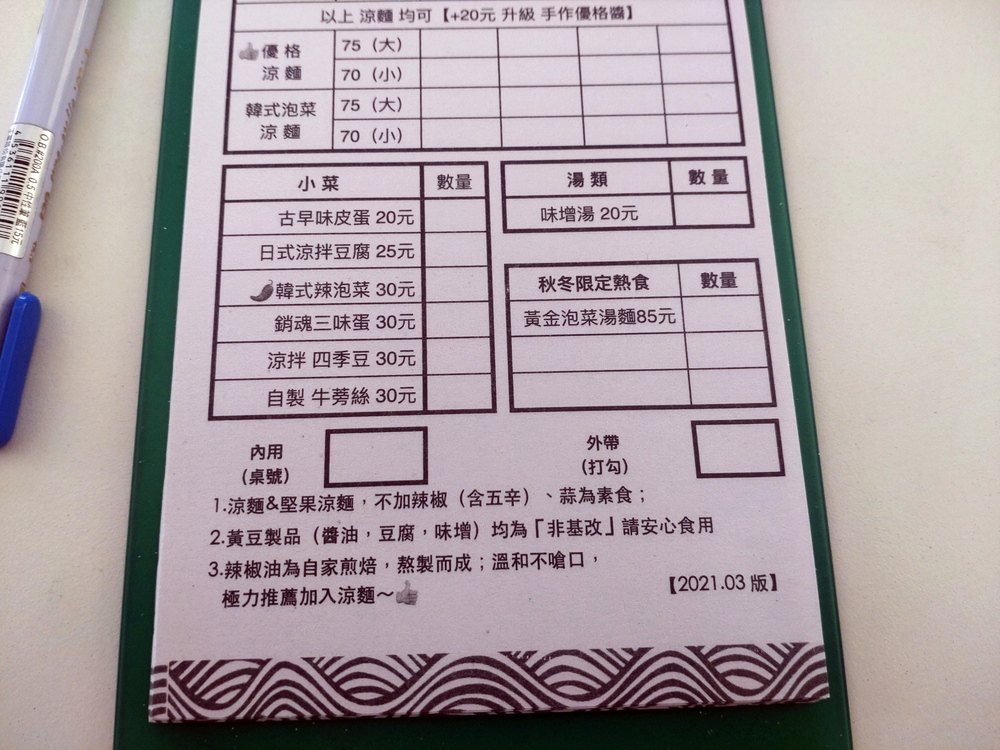 以上 涼麵 均可【+20元 升級 手作優格醬】
優格
涼麵
75（大）
70（小）
韓式泡菜
涼麵
75（大）
70（小）
小菜 數量
古早味皮蛋 20元
日式涼拌豆腐 25元
韓式辣泡菜 30元
銷魂三味蛋 30元
涼拌 四季豆 30元
自製 牛蒡絲 30元
湯類 數量
味增湯 20元
秋冬限定熱食 數量
黃金泡菜湯麵85元
內用
（桌號）
外帶
（打勾）
1.涼麵&堅果涼麵，不加辣椒（含五辛）、蒜為素食；
2.黃豆製品（醬油，豆腐，味增）均為「非基改」請安心食用
3.辣椒油為自家煎焙，熬製而成；溫和不嗆口，
極力推薦加入涼麵～
【2021.03 版】
O.B.#200A 0.5 中性筆 藍 15元